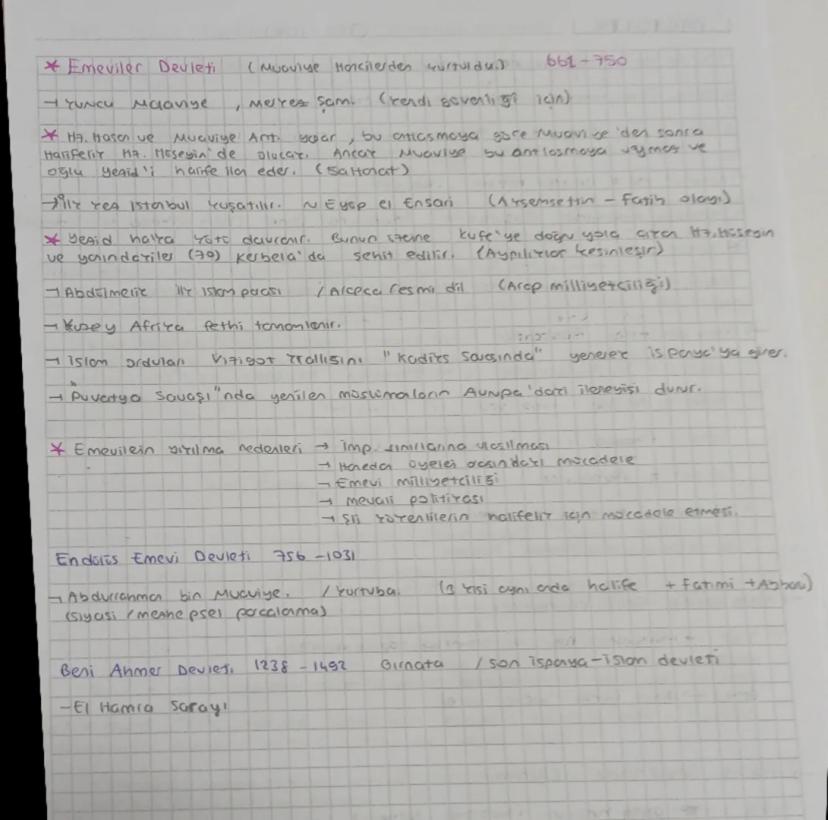 * Emeviler Devleti (Muaviye Haricilerden kurtuldu.) 661-750
→ Kurucu Muaviye, Merkez Şam. (kendi güvenliği için)
* Hz. Hasan ve Muaviye Ant. yapar, bu antlaşmaya göre Muaviye'den sonra
Halifelik Hz. Hüseyin'de olucak. Ancak Muaviye bu antlaşmaya uymaz ve
oğlu Yezid'i halife ilan eder. (Saltanat)
→ İlk kez İstanbul kuşatılır. ~ Eyüp el Ensari (Akşemsettin - Fatih olayı)
* Yezid halka kötü davranır. Bunun üzerine Kufe'ye doğru yola çıkan Hz. Hüseyin
ve yanındakiler (70) Kerbela'da şehit edilir. (Ayrılıklar kesinleşir)
→ Abdülmelik ilk İslam parası / Arapça resmi dil (Arap milliyetçiliği)
→ Kuzey Afrika fethi tamamlanır.
→ İslam orduları Vizigot Krallığını "Kadiks Savaşında" yenerek İspanya'ya girer.
→ "Puvatya Savaşı"nda yenilen müslümanların Avrupa'daki ilerleyişi durur.
* Emevilerin yıkılma nedenleri → İmp. sınırlarına ulaşılması
→ Hanedan üyeleri arasındaki mücadele
→ Emevi milliyetçiliği
→ mevali politikası
→ Şii yönetimlerin halifelik için mücadele etmesi.
Endülüs Emevi Devleti 756-1031
→ Abdurrahman bin Muaviye. / Kurtuba. (3 kişi aynı anda halife + Fatımi + Abbasi)
(siyasi / mezhepsel parçalanma)
Beni Ahmer Devleti. 1238-1492 Gırnata / son İspanya-İslam devleti
- El Hamra Sarayı